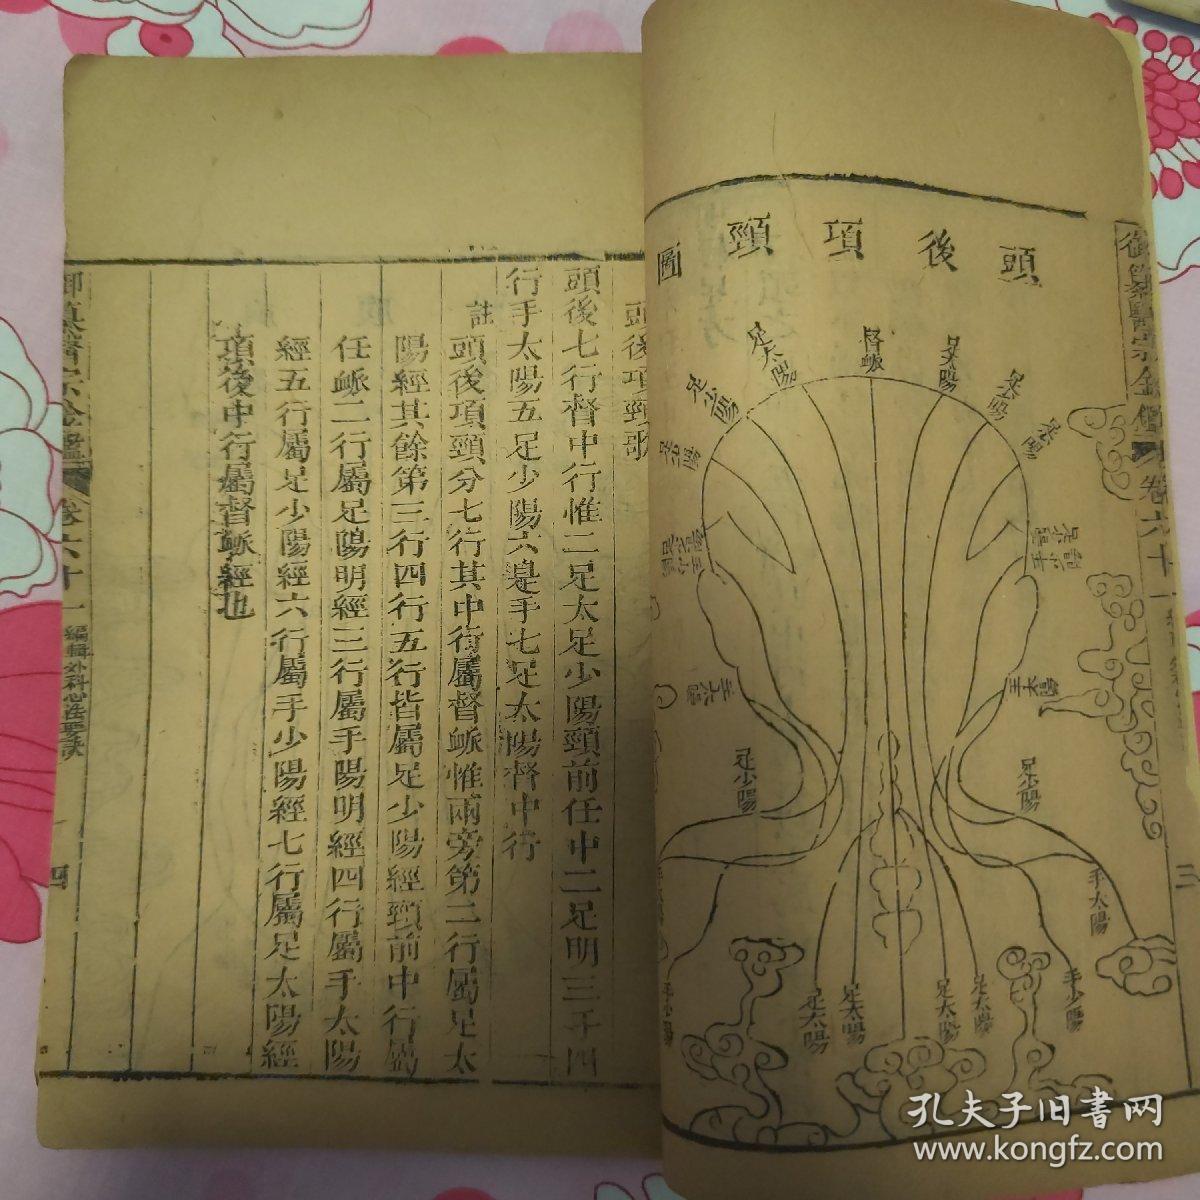 頭後項頸圖
督脈
足太陽
足太陽
足少陽
足少陽
足少陽
足少陽
手太陽
手太陽
足少陽
足少陽
手太陽
手少陽
足太陽
足太陽
足太陽
足太陽
御纂醫宗金鑑
卷六十一
三
頭後項頸歌
頭後七行督中行惟二足太足少陽頸前任中二足明三手四
行手太陽五足少陽六是手七足太陽督中行
註
頭後項頸分七行其中行屬督脈惟兩旁第二行屬足太
陽經其餘第三行四行五行皆屬足少陽經頸前中行屬
任脈二行屬足陽明經三行屬手陽明經四行屬手太陽
經五行屬足少陽經六行屬手少陽經七行屬足太陽經
項後中行屬督脈經也
御纂醫宗金鑑
卷六十一
編輯外科心法要訣
四
孔夫子旧书网
www.kongfz.com